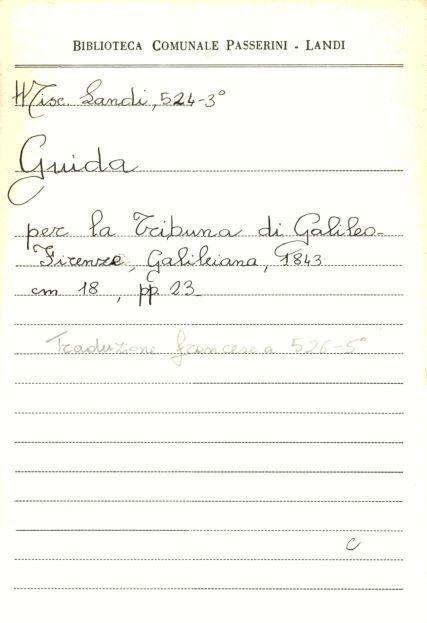 BIBLIOTECA COMUNALE PASSERINI - LANDI
Misc. Landi, 524-3°
Guida
per la Tribuna di Galileo-
Firenze, Galileiana, 1843
cm 18, pp. 23-
Traduzione francese a 526-5°
C